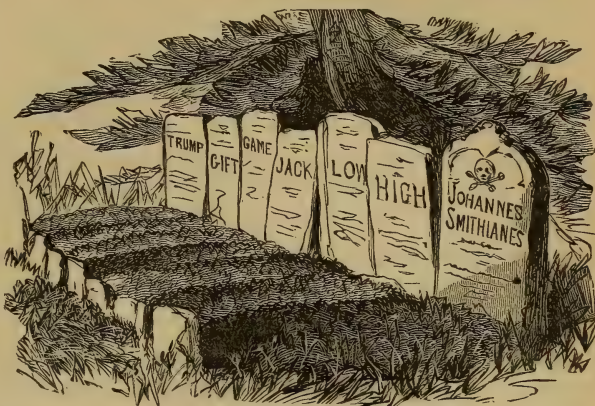 TRUMP
GIFT
GAME
JACK
LOW
HIGH
JOHANNES
SMITHIANES